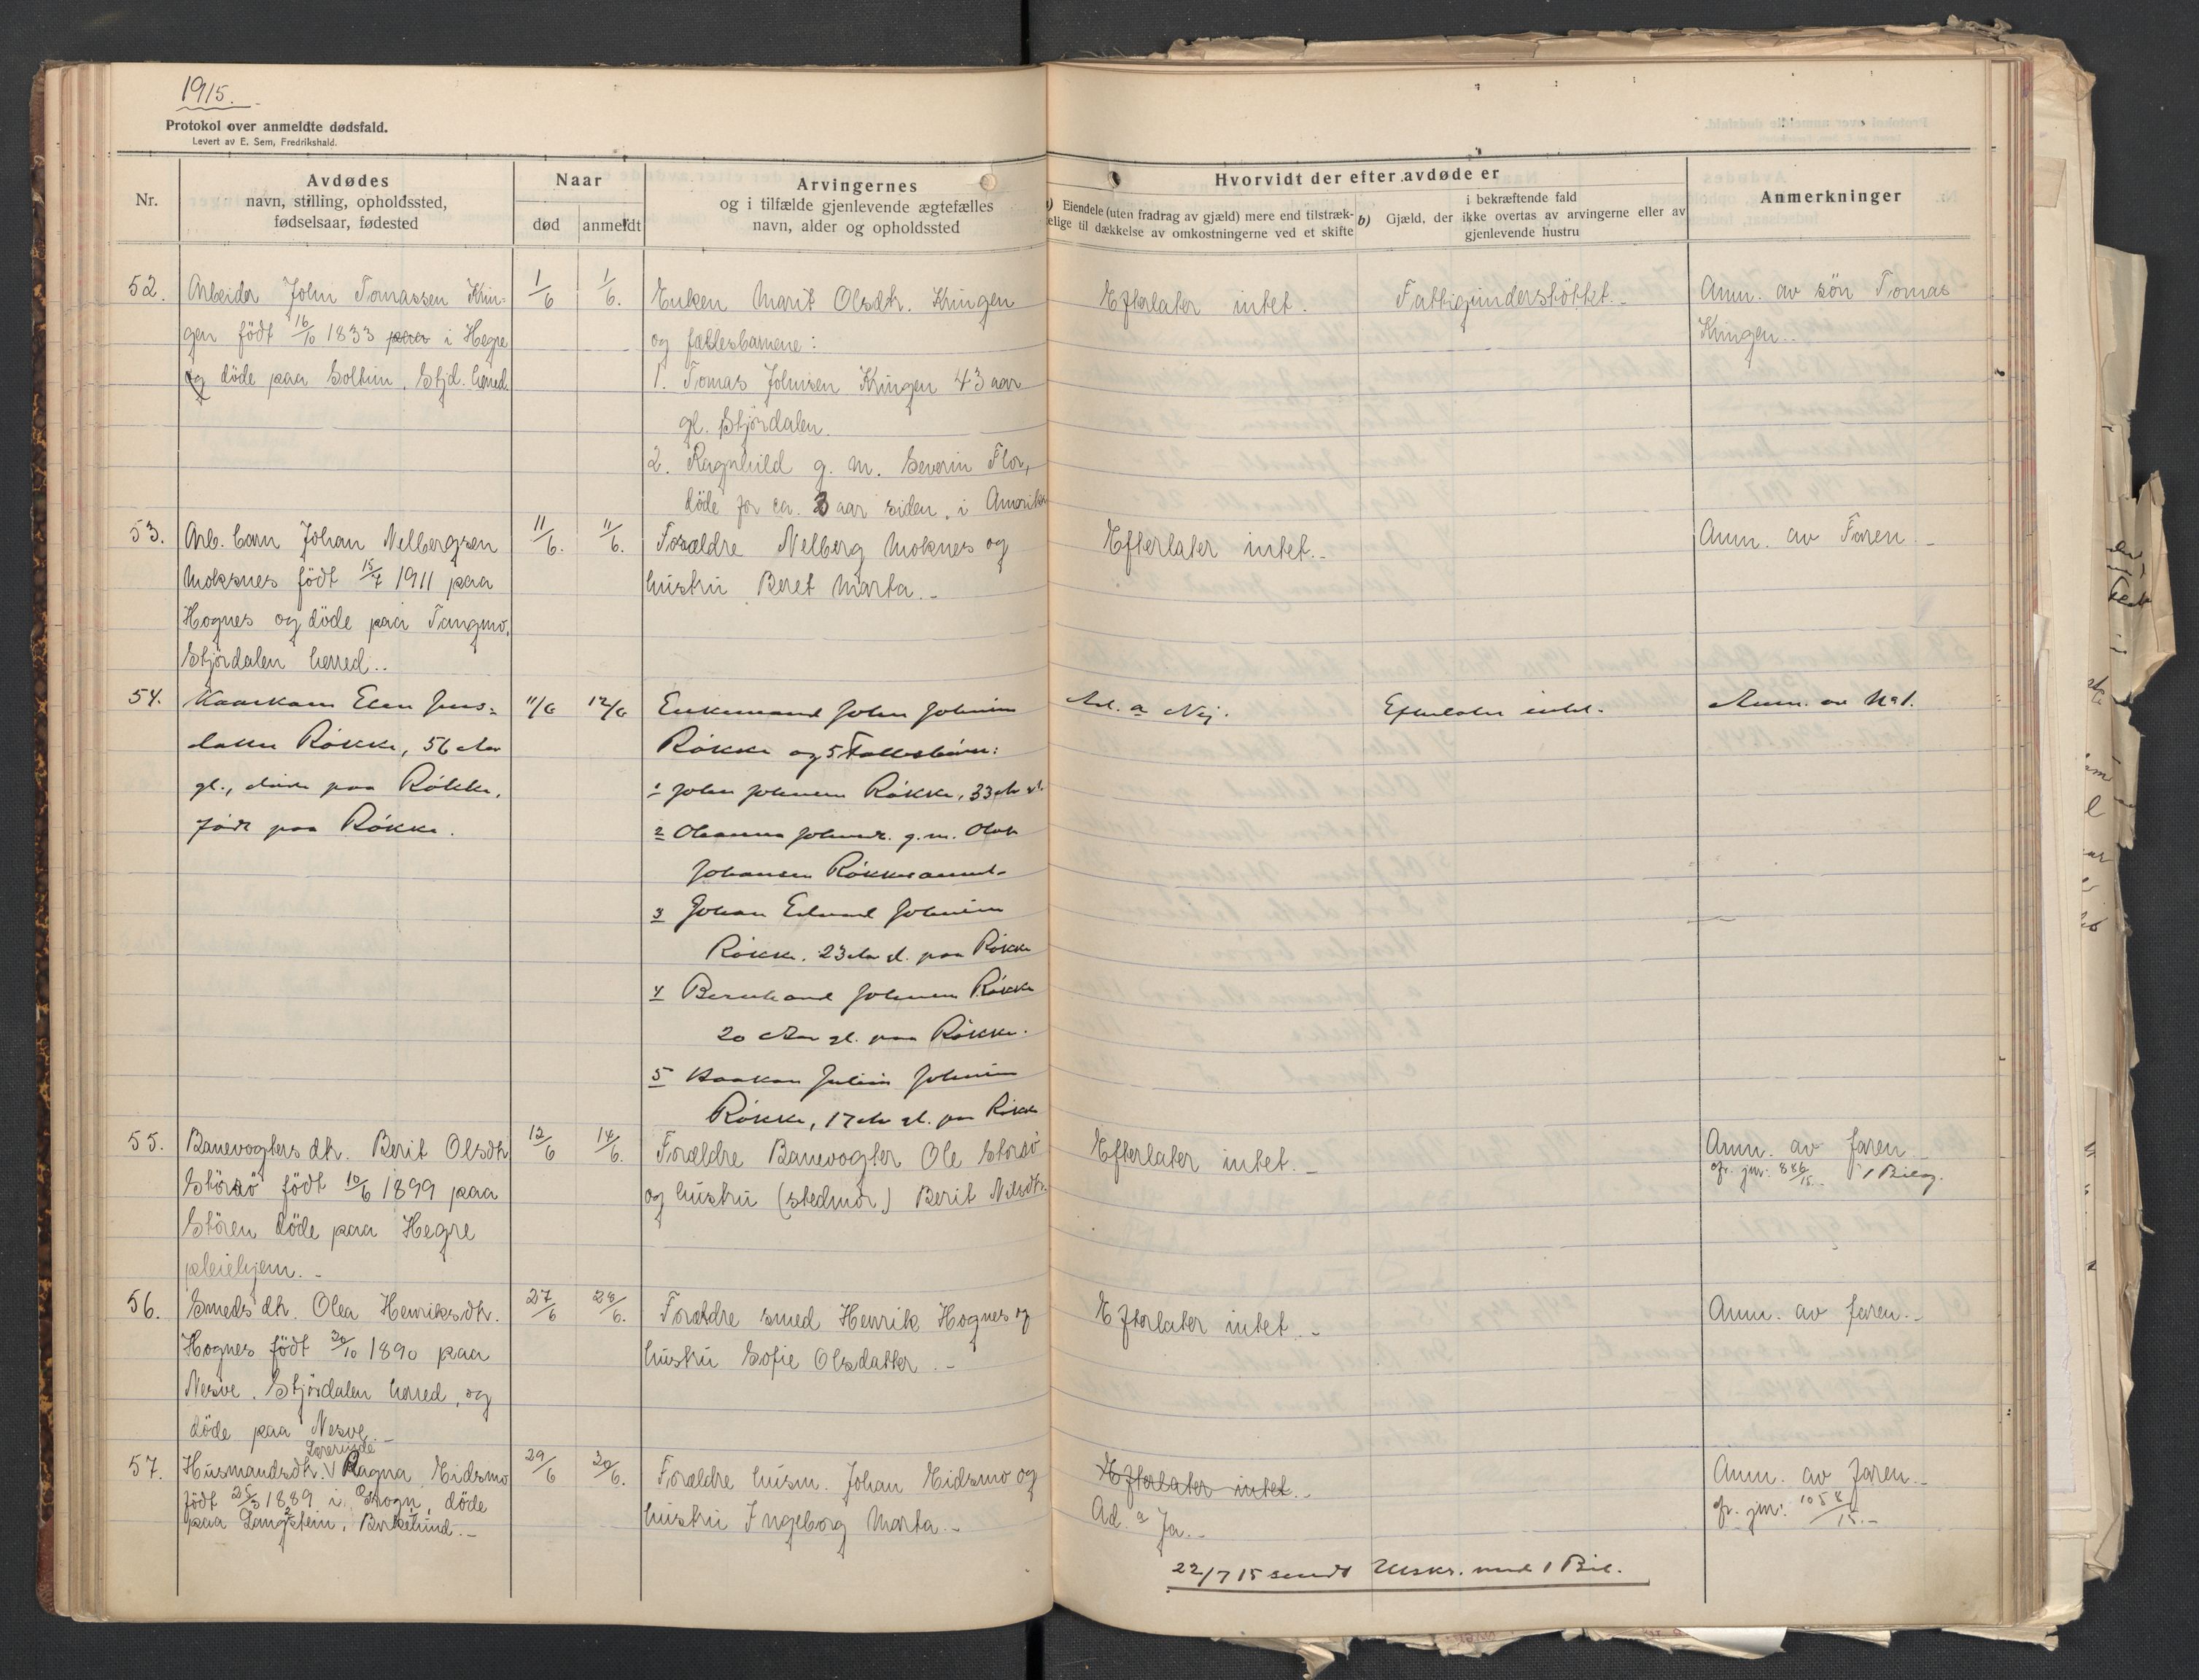 1915.
Protokol over anmeldte dødsfald.
Levert av E. Sem, Fredrikshald.
Nr.
Avdødes
navn, stilling, opholdssted,
fødselsaar, fødested
Naar
død
anmeldt
Arvingernes
og i tilfælde gjenlevende ægtefælles
navn, alder og opholdssted
Hvorvidt der efter avdøde er
a) Eiendele (uten fradrag av gjæld) mere end tilstræk-
kelige til dækkelse av omkostningerne ved et skifte
b) Gjæld, der
i bekræftende fald
ikke overtas av arvingerne eller av
gjenlevende hustru
Anmerkninger
52.
Arbeider John Tomassen Krin-
gen födt 16/10 1833 paa i Hegre
og döde paa Solhim, Stjd. herred.
1/6
1/6.
Enken Marit Olsdtr. Kringen
og fællesbarnene:
1. Tomas Johnsen Kringen 43 aar
gl. Stjördalen.
2. Ragnhild g. m. Severin Flor,
döde for ca. 3 aar siden, i Amerika
Efterlater intet.
Fattigunderstöttet.-
Anm. av sön Tomas
Kringen..
53.
Arb. barn Johan Nelbergsen
Moksnes födt 15/7 1911 paa
Hognes og döde paa Tangmo,
Stjördalen herred..
11/6.
11/6.
Forældre Nelberg Moknes og
hustru Beret Marta.-
Efterlater intet.-
Anm. av Faren.-
54.
Kaarkone Elen Jens-
datter Røkke, 56 Aar
gl., døde paa Røkke,
født paa Røkke.
11/6
12/6
Enkemand John Johnsen
Røkke og 5 Fællesbørn:
1 John Johnsen Røkke, 33 Ar gl.
2 Oleanna Johnsdt. g. m. Olaf
Johansen Røkke
3 Johan Edvard Johnsen
Røkke, 23 Aar gl. paa Røkke
4 Bernhard Johnsen Røkke
20 Aar gl. paa Røkke.
5 Haakon Julius Johnsen
Røkke, 17 Ar gl. paa Røkke
Ad. a Nej.
Efterlater intet.
Anm. av No 1.
55.
Banevogters dtr. Berit Olsdtr
Störsö födt 10/6 1899 paa
Stören döde paa Hegre
pleiehjem.-
12/6
14/6.
Forældre Banevogter Ole Storsö
og hustru (stedmor) Berit Nilsdtr.
Efterlater intet.-
Anm. av faren.
cfr. jnr. 886/15.- 1 Bilag.
56.
Smeds dtr. Olea Henriksdtr.
Hognes födt 20/10 1890 paa
Nesve. Stjördalen herred, og
döde paa Nesve.-
27/6
28/6.
Forældre smed Henrik Hognes og
hustru Sofie Olsdatter.-
Efterlater intet.-
Anm. av faren.-
57.
Lærerinde
Husmandsdtr. V Ragna Eidsmo
födt 25/3 1889 i Skogn, döde
paa Langstein, Birkelund.-
29/6
30/6.
Forældre husm. Johan Eidsmo og
hustru Ingeborg Marta.-
Efterlater intet.-
Ad. a Ja.-
22/7 15 sendt Utskr. med 1 Bil.
Anm. av faren.-
cfr. jnr. 1058/15.-